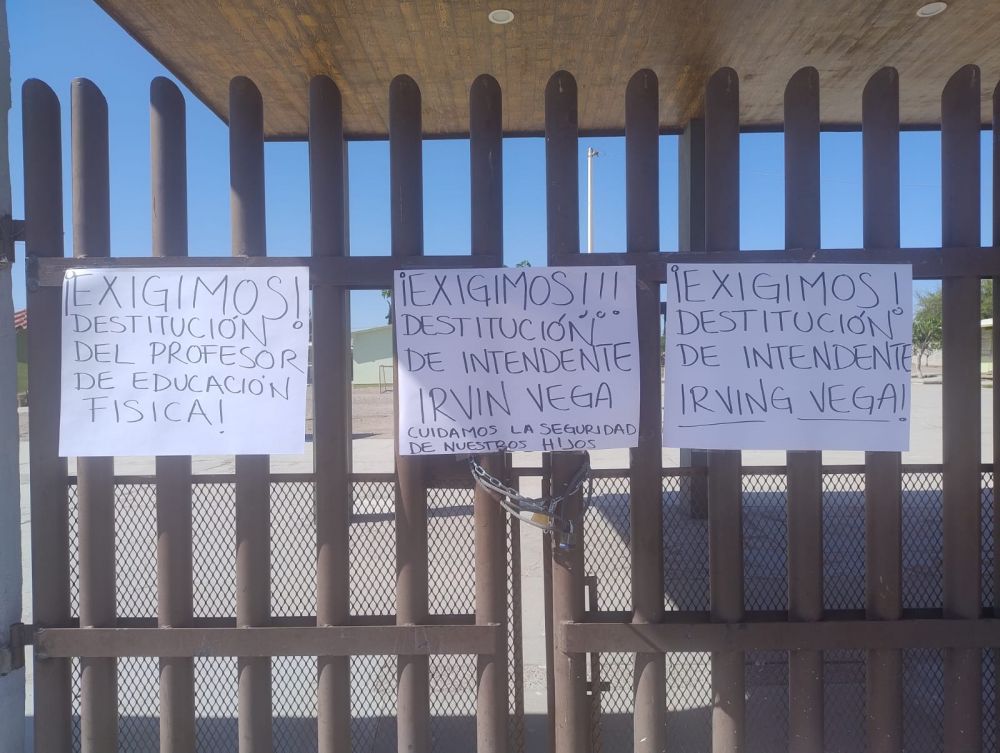 ¡EXIGIMOS!
DESTITUCIÓN
DEL PROFESOR
DE EDUCACIÓN
FISICA!
¡EXIGIMOS!!!
DESTITUCIÓN
DE INTENDENTE
IRVIN VEGA
CUIDAMOS LA SEGURIDAD
DE NUESTROS HIJOS
¡EXIGIMOS!
DESTITUCIÓN
DE INTENDENTE
IRVING VEGA!